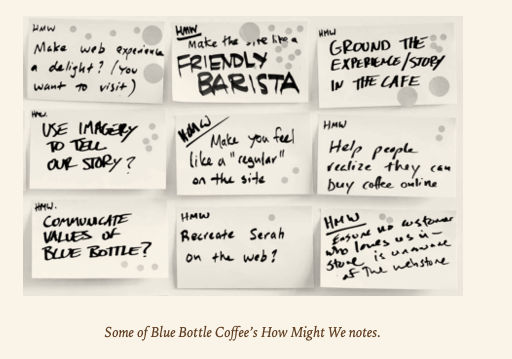 HMW
Make web experience
a delight? (You
want to visit)
HMW
Make the site like a
FRIENDLY
BARISTA
HMW
GROUND THE
EXPERIENCE/STORY
IN THE CAFE
HMW.
USE IMAGERY
TO TELL
OUR STORY?
HMW
Make you feel
like a "regular"
on the site
HMW
Help people
realize they can
buy coffee online
HMW.
COMMUNICATE
VALUES OF
BLUE BOTTLE?
HMW
Recreate Serah
on the web?
HMW
Ensure no customer
who loves us in-
store is unaware
of the webstore
Some of Blue Bottle Coffee's How Might We notes.